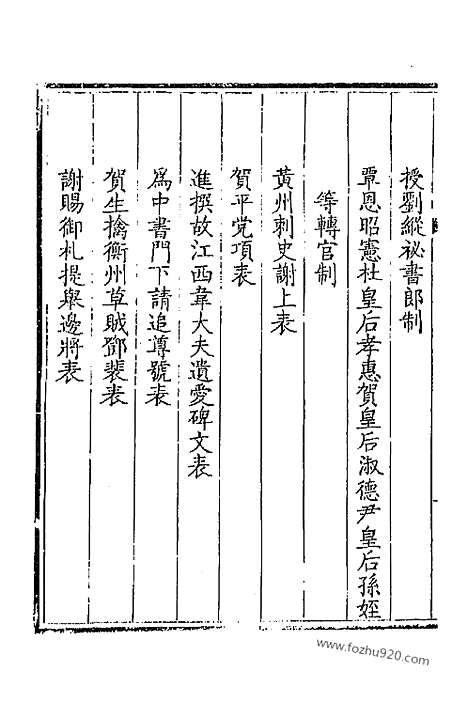 授劉縱祕書郎制
覃恩昭憲杜皇后孝惠賀皇后淑德尹皇后孫姪
等轉官制
黃州刺史謝上表
賀平党項表
進撰故江西韋大夫遺愛碑文表
爲中書門下請追尊號表
賀生擒衡州草賊鄧裴表
謝賜御札提舉邊將表
www.fozhu920.com